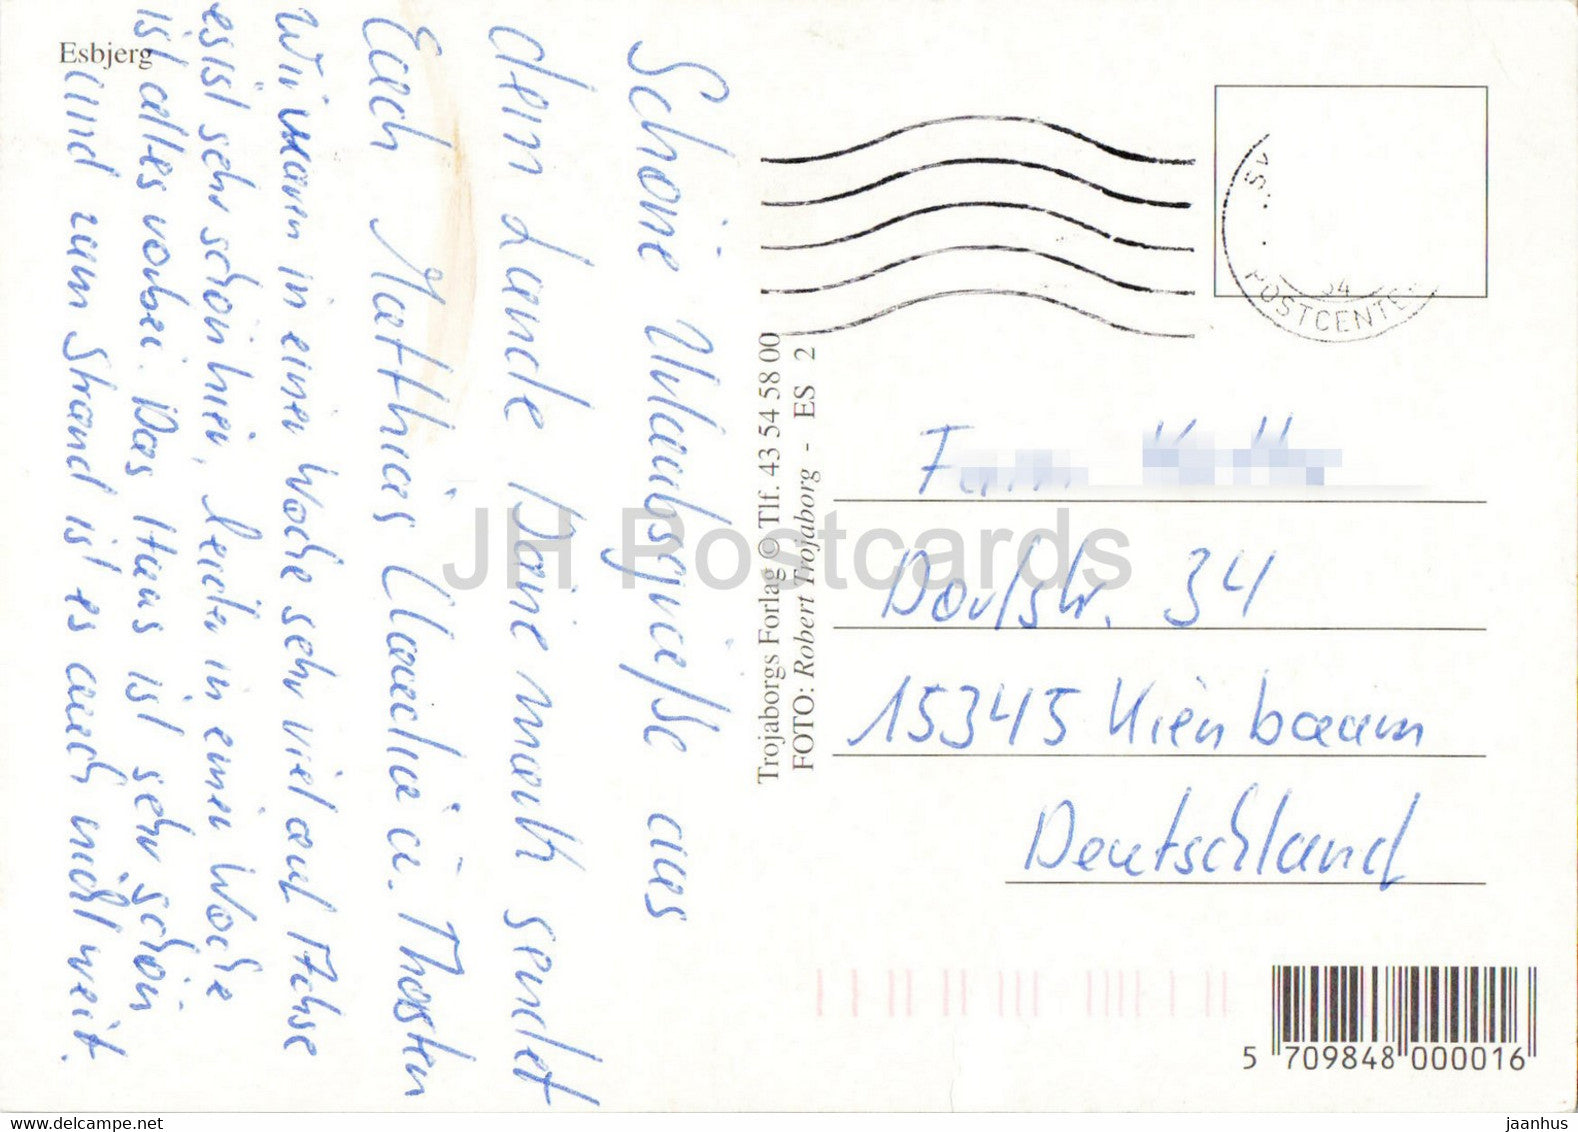 Esbjerg
Schöne Urlaubsgrüße aus
dem Lande Dänemark sendet
Euch Matthias, Claudia u. Thorsten
Wir waren in einer Woche sehr viel auf Achse
es ist sehr schön hier, leider in einer Woche
ist alles vorbei. Das Haus ist sehr schön
und zum Strand ist es auch nicht weit.
Trojaborgs Forlag © Tlf. 43 54 58 00
FOTO: Robert Trojaborg - ES 2
POSTCENTER
Fam
Dorfstr. 34
15345 Kienbaum
Deutschland
5 709848 000016
JH Postcards
www.delcampe.net
jaanhus